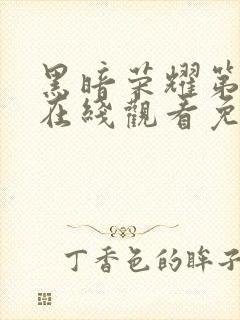 黑暗荣耀第
在线觀看免
丁香色的眸子